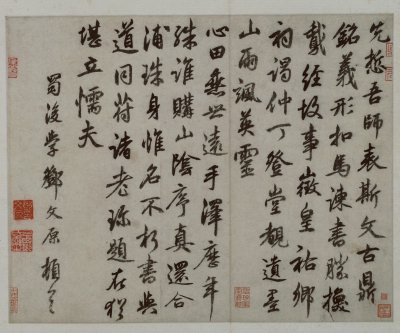 先悊吾師表斯文古鼎
銘義形扣馬諫書勝換
鵞經故事徵皇祐鄉
祠謁仲丁登堂觀遺墨
山雨颯英靈
心田垂世遠手澤歷年
殊誰購山陰序真還合
浦珠身惟名不朽書與
道同符諸老珎題在猶
堪立懦夫
蜀後學鄧文原頓首